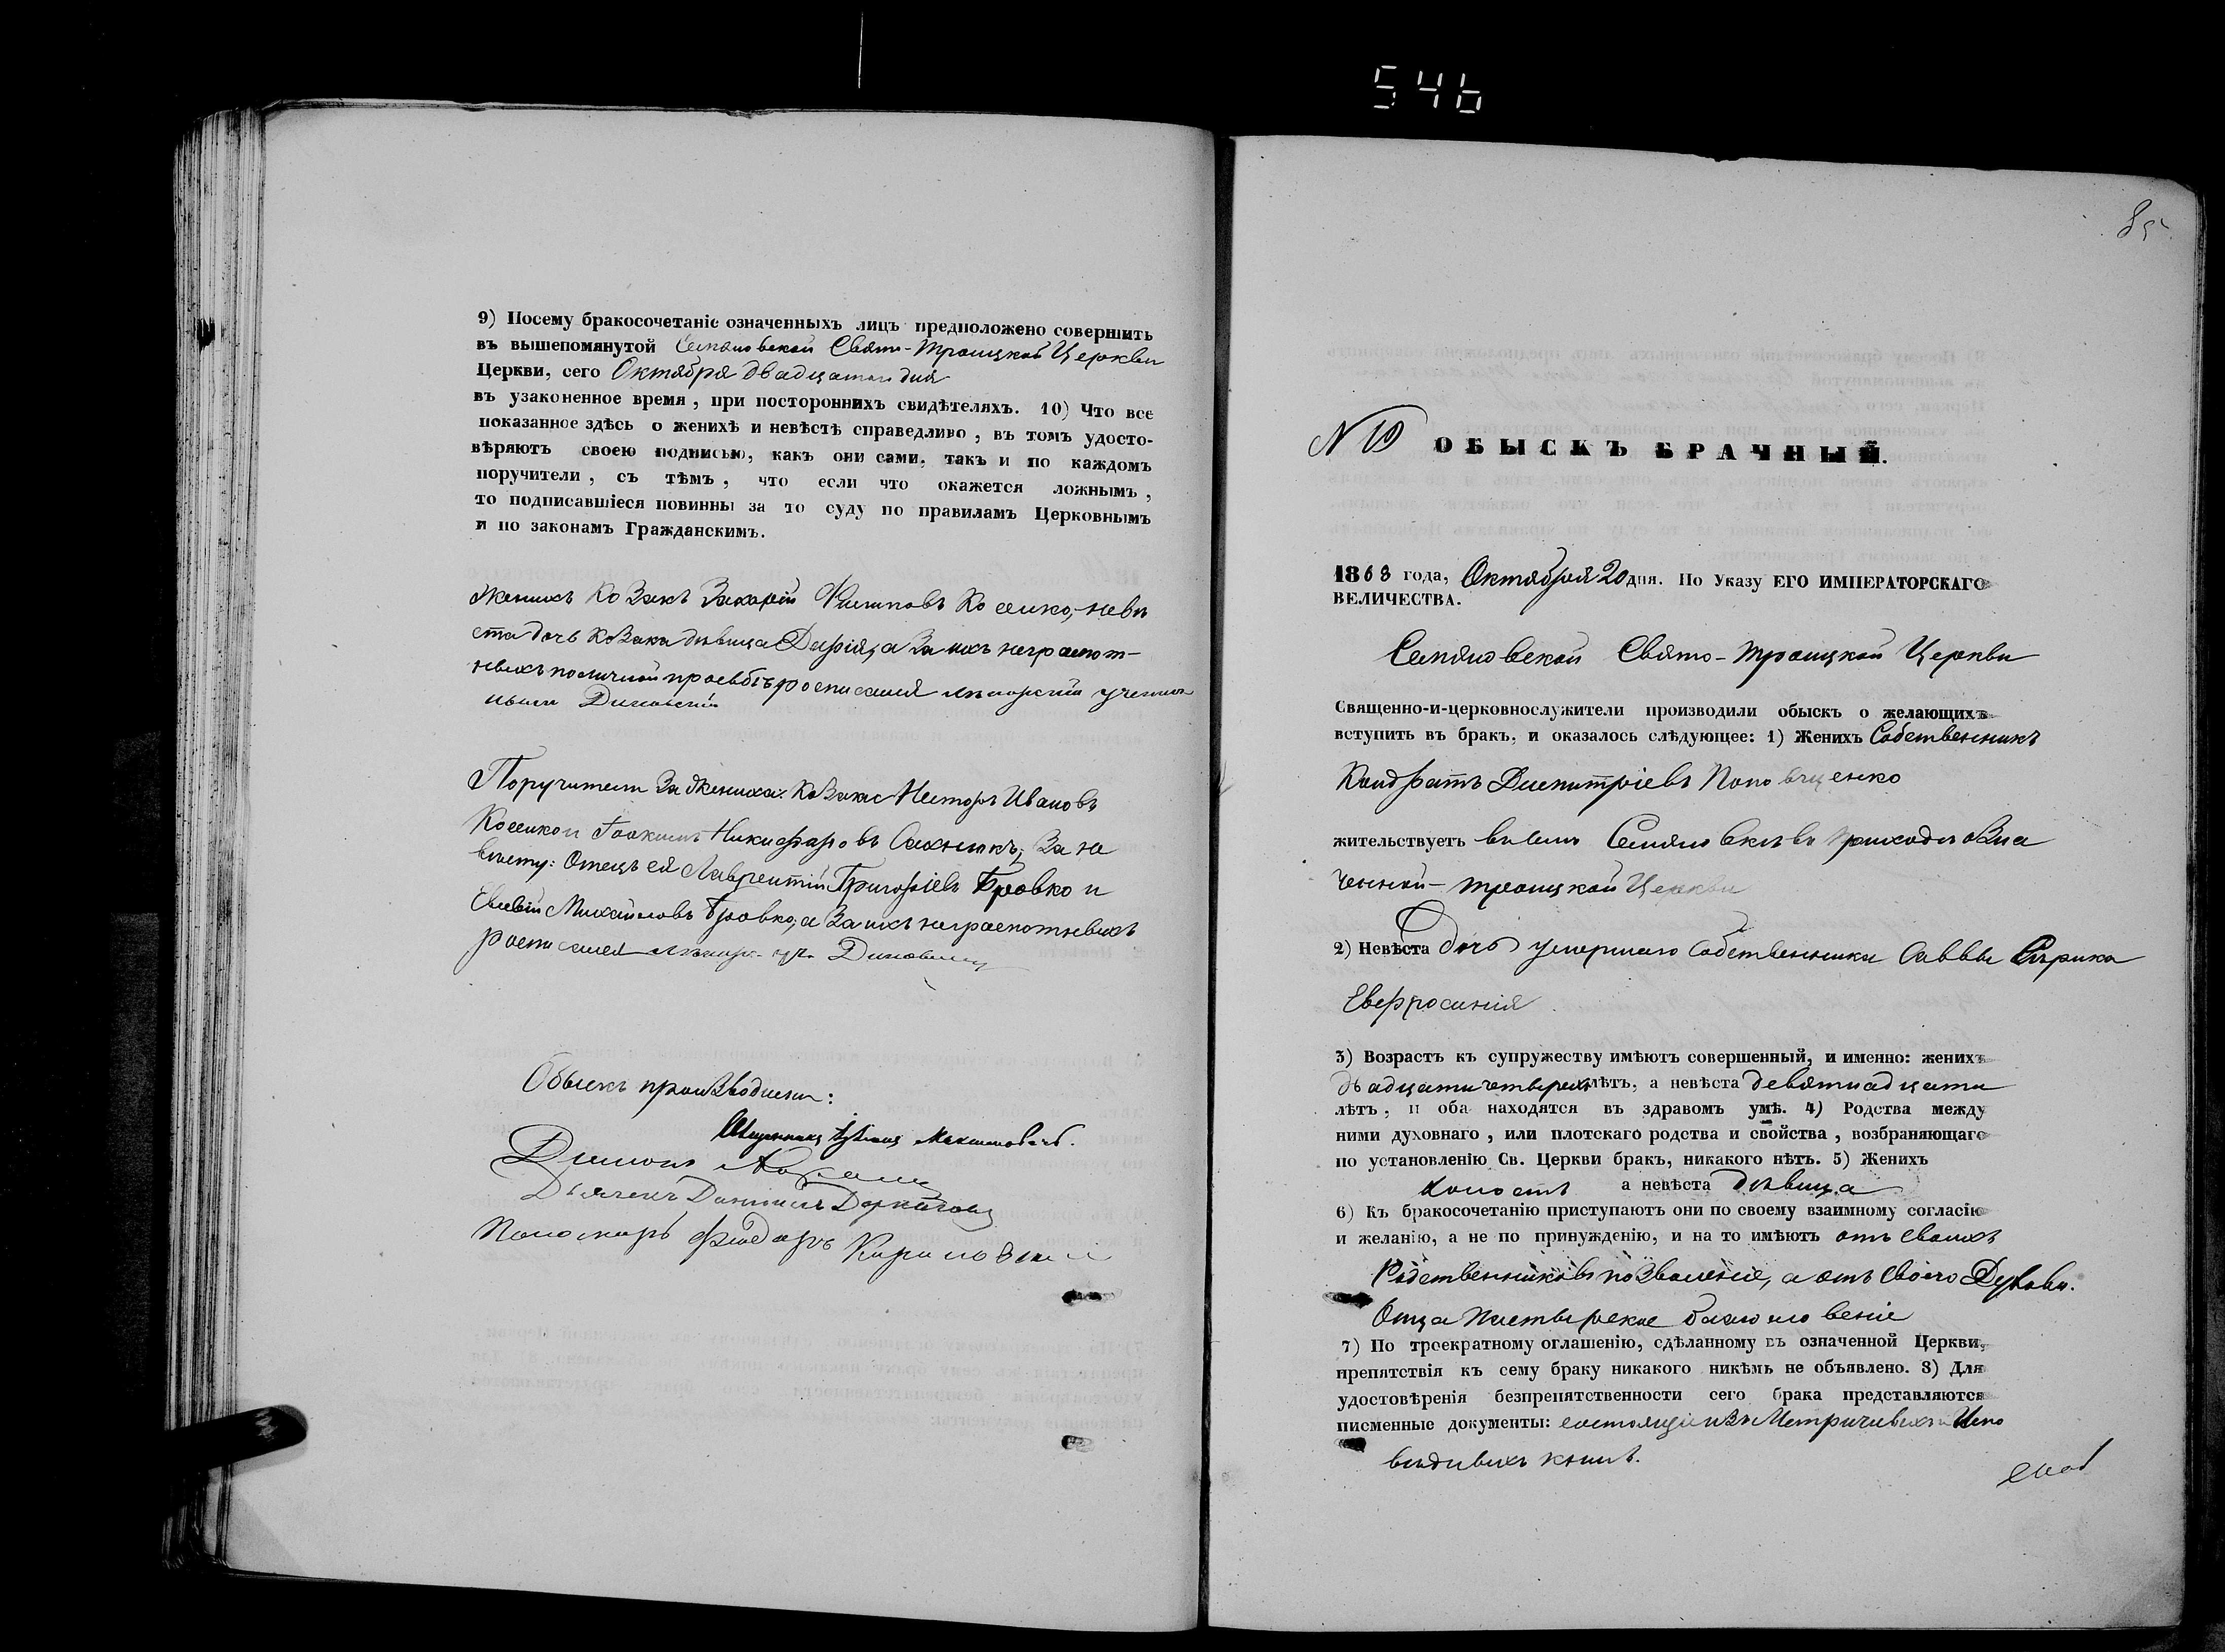 546
9) Посему бракосочетаніе означенныхъ лицъ предположено совершить
въ вышепомянутой Семяновской Свято-Троицкой Церкви
Церкви, сего Октября двадцатаго дня
въ узаконенное время, при постороннихъ свидѣтеляхъ. 10) Что все
показанное здѣсь о женихѣ и невѣстѣ справедливо, въ томъ удосто-
вѣряютъ своею подписью, какъ они сами, такъ и по каждомъ
поручители, съ тѣмъ, что если что окажется ложнымъ,
то подписавшіеся повинны за то суду по правиламъ Церковнымъ
и по законамъ Гражданскимъ.
Женихъ Козакъ Захарій Филиповъ Ко, невѣ
ста дочь козака дѣвица Дарія, а за ихъ неграмот-
ныхъ по личной прозьбѣ росписался
Поручители За Жениха: Козаки Несторъ Ивановъ
Никифоровъ За не
вѣсту: Отецъ ей Лаврентій Григоріевъ Бровко и
Михайловъ Бровко, а За ихъ неграмотныхъ
росписался
Обыскъ производили:
Священникъ Максимовичъ.
Дьячекъ Даніилъ
Пономарь Фіодоръ
№ 19 ОБЫСКЪ БРАЧНЫЙ.
1868 года, Октября 20 дня. По Указу ЕГО ИМПЕРАТОРСКАГО
ВЕЛИЧЕСТВА.
Семяновской Свято-Троицкой Церкви
Священно-и-церковнослужители производили обыскъ о желающихъ
вступить въ бракъ, и оказалось слѣдующее: 1) Женихъ Собственникъ
Кондратъ Димитріевъ Поповиченко
жительствуетъ въ селѣ Семяновкѣ въ приходѣ озна
ченной-Троицкой Церкви
2) Невѣста Дочь умершаго Собственника Саввы Сирика
Евфросинія
3) Возрастъ къ супружеству имѣютъ совершенный, и именно: женихъ
двадцати четырехъ лѣтъ, а невѣста девятнадцати
лѣтъ, и оба находятся въ здравомъ умѣ. 4) Родства между
ними духовнаго, или плотскаго родства и свойства, возбраняющаго
по установленію Св. Церкви бракъ, никакого нѣтъ. 5) Женихъ
холостъ а невѣста дѣвица
6) Къ бракосочетанію приступаютъ они по своему взаимному согласію
и желанію, а не по принужденію, и на то имѣютъ отъ своихъ
Родственниковъ позволеніе, а отъ своего Духовн.
Отца Пастырское благословеніе
7) По троекратному оглашенію, сдѣланному въ означенной Церкви,
препятствія къ сему браку никакого никѣмъ не объявлено. 8) Для
удостовѣренія безпрепятственности сего брака представляются
писменные документы: состоящіе изъ Метричныхъ и Испо
вѣдныхъ книгъ.